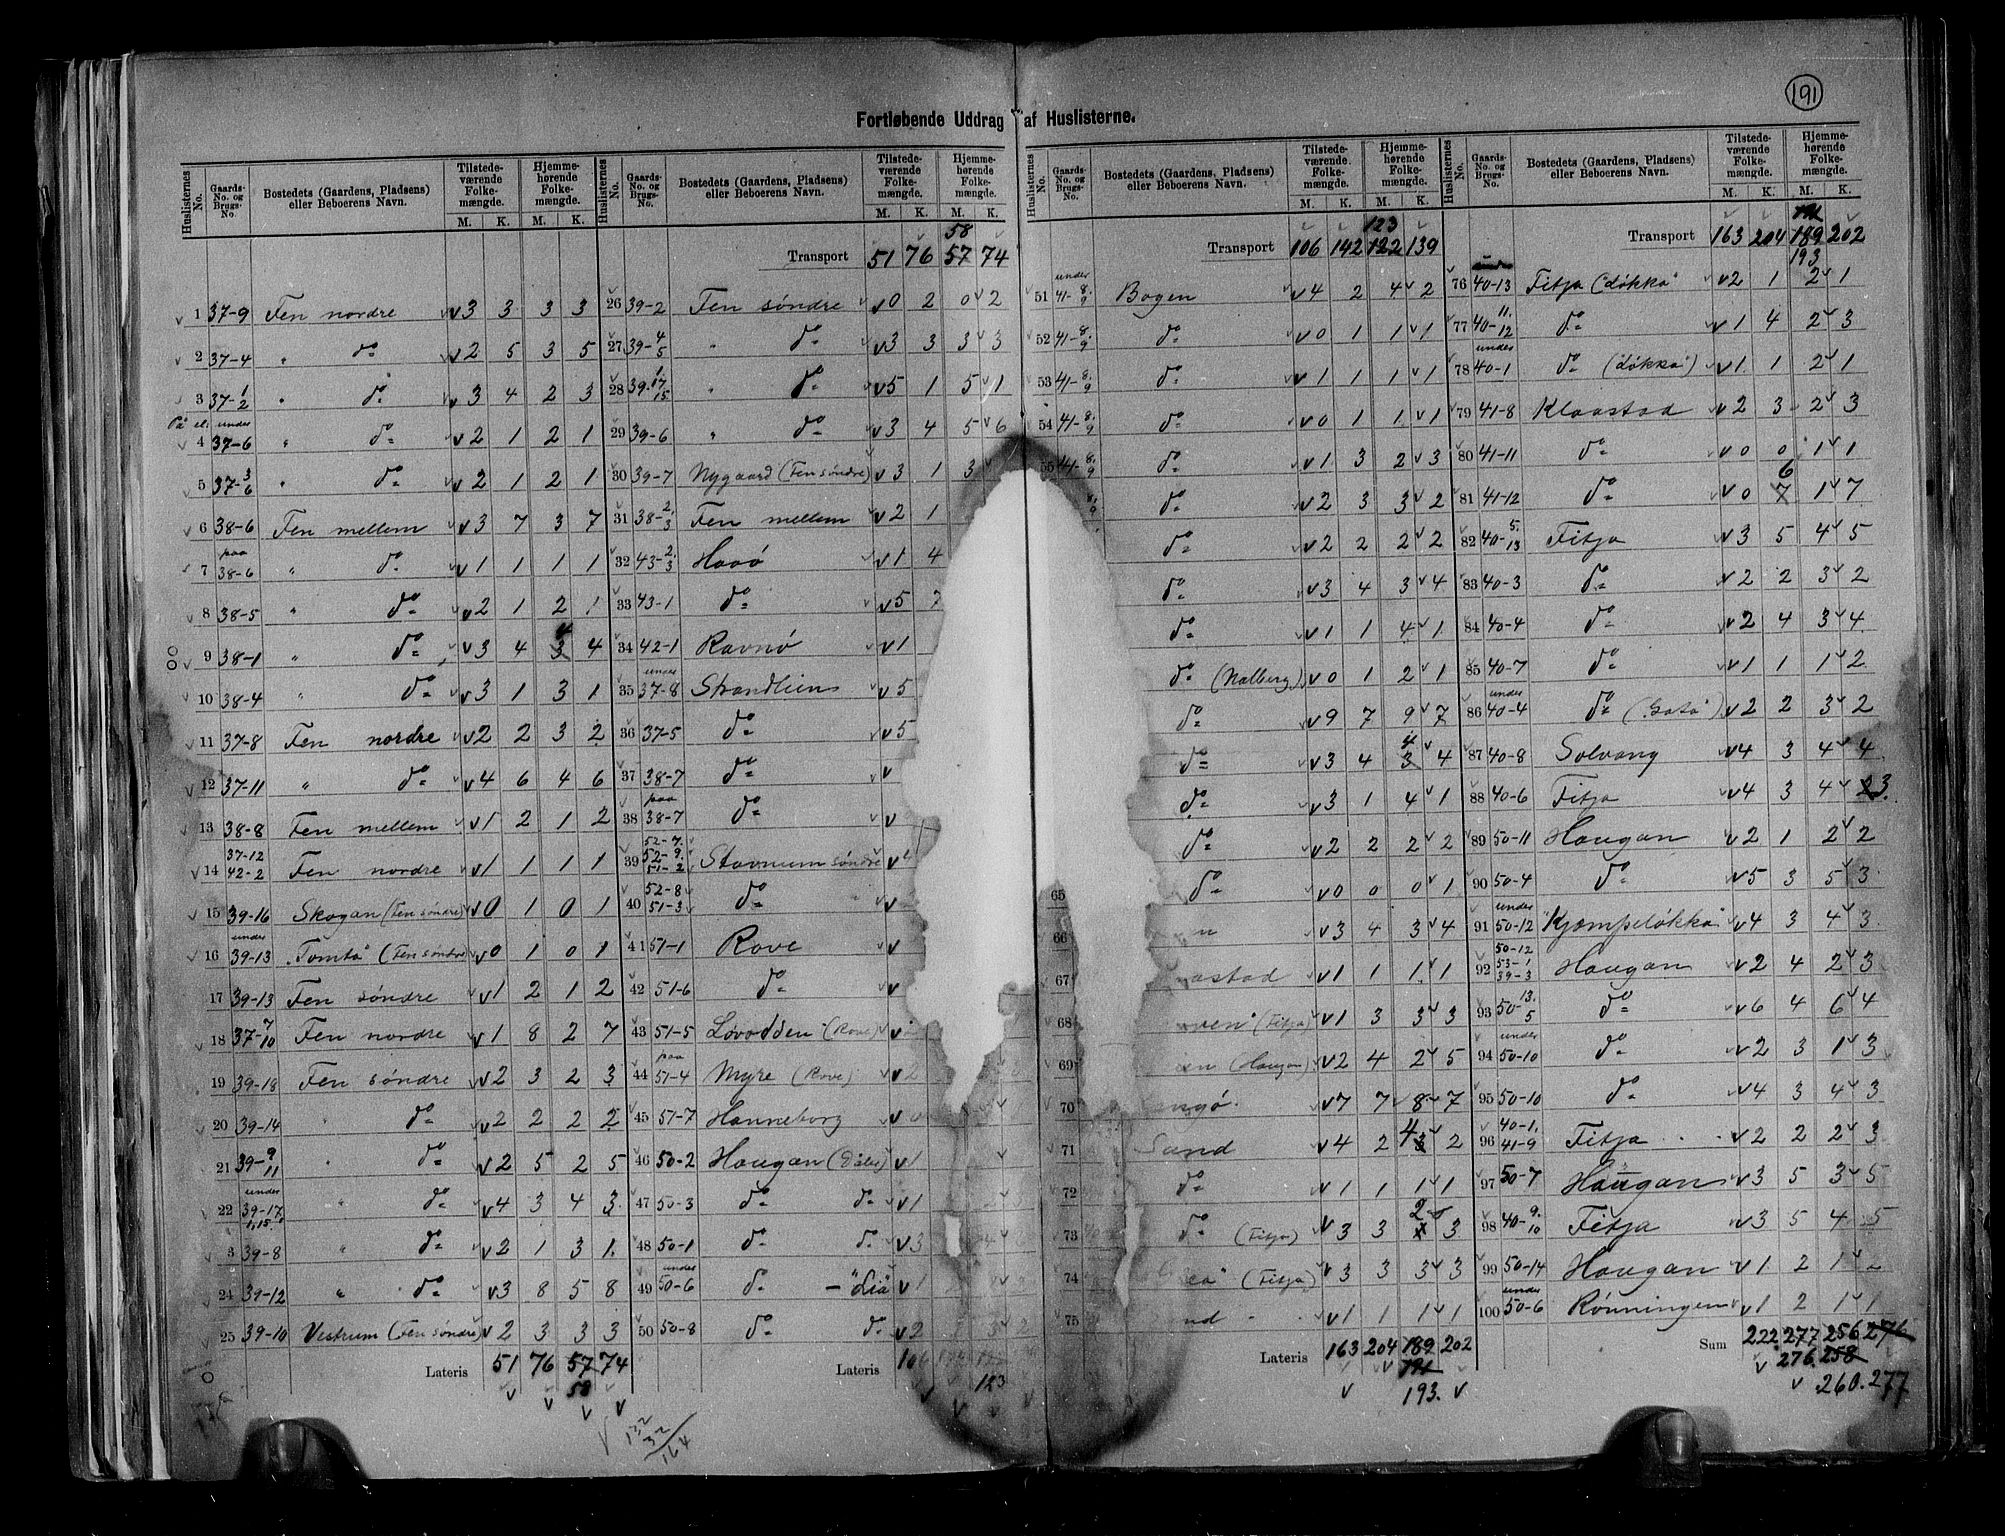 191
Fortløbende Uddrag af Huslisterne.
Huslisternes No. | Gaards-No. og Brugs-No. | Bostedets (Gaardens, Pladsens) eller Beboerens Navn. | Tilstedeværende Folkemængde. M. K. | Hjemmehørende Folkemængde. M. K.
1 37-9 Fen nordre v3 3 3 3
2 37-4 " do v2 5 3 5
3 37-1/2 " do v3 4 2 3
4 under 37-6 " do v2 1 2 1
5 37-3/6 " do v2 1 2 1
6 38-6 Fen mellem v3 7 3 7
7 paa 38-6 " do v1 1 1 1
8 38-5 " do v2 1 2 1
9 38-1 " do v3 4 3 4 4
10 38-4 " do v3 1 3 1
11 37-8 Fen nordre v2 2 3 2
12 37-11 " do v4 6 4 6
13 38-8 Fen mellem v1 2 1 2
14 37-12 42-2 Fen nordre v1 1 1 1
15 39-16 Skogan (Fen søndre) v0 1 0 1
16 under 39-13 "Tomta" (Fen søndre) v0 1 0 1
17 39-13 Fen søndre v1 2 1 2
18 37-7/10 Fen nordre v1 8 2 7
19 39-18 Fen søndre v2 3 2 3
20 39-14 " do v2 2 2 2
21 39-9/11 " do v2 5 2 5
22 under 39-17 1,15 " do v4 3 4 3
3 39-8 " do v2 1 3 1
24 39-12 " do v3 8 5 8
25 39-10 Vestrum (Fen søndre) v2 3 3 3
Lateris 51 76 57 74
58
132
32
164
Huslisternes No. | Gaards-No. og Brugs-No. | Bostedets (Gaardens, Pladsens) eller Beboerens Navn. | Tilstedeværende Folkemængde. M. K. | Hjemmehørende Folkemængde. M. K.
58
Transport 51 76 57 74
26 39-2 Fen søndre v0 2 0 2
27 39-4/5 " do v3 3 3 3
28 39-1.17/15 " do v5 1 5 1
29 39-6 " do v3 4 5 6
30 39-7 Nygaard (Fen søndre) v3 1 3
31 38-2/3 Fen mellem v2 1
32 43-2/3 Havø v1 4
33 43-1 do v5 7
34 42-1 Ravnø v1
35 under 37-8 Strandlien v5
36 37-5 do v5
37 38-7 do v
38 paa 38-7 do v
39 52-7. 52-9. 51-2 Stavnum søndre v4
40 52-8 51-3 do v
41 51-1 Rove v
42 51-6 do v
43 51-5 Lovodden (Rove) v
44 paa 51-4 Myre (Rove) v2
45 57-7 Hanneborg v0
46 50-2 Haugan v1
47 50-3 do do v1
48 50-1 do do v3
49 under 50-6 do - "Lia" v1
50 50-8 do do v2 3 2
Lateris 106
123
Huslisternes No. | Gaards-No. og Brugs-No. | Bostedets (Gaardens, Pladsens) eller Beboerens Navn. | Tilstedeværende Folkemængde. M. K. | Hjemmehørende Folkemængde. M. K.
123
Transport 106 142 122 139
51 under 41-8/9 Bogen v4 2 4 2
52 41-8/9 do v0 1 1 1
53 41-8/9 do v1 1 1 1
54 41-8/9 do v0 1 1 1
55 41-8/9 do v1 3 2 3
do v2 3 3 2
do v2 2 2 2
do v3 4 3 4
do v1 1 4 1
do (Nalberg) v0 1 2 1
do v9 7 9 7
do v3 4 3 4 4
do v3 1 4 1
do v2 2 2 2
65 do v0 0 0 1
66 n v3 4 3 4
67 astad v1 1 1 1
68 ven" (Fitja) v1 3 3 3
69 en (Haugan) v2 4 2 5
70 v7 7 8 7
71 Sand v4 2 4 3 2
72 do v1 1 1 1
73 do (Fitja) v3 3 2 3
74 (Fitja) v3 3 3 3
75 nd v1 1 1 1
Lateris 163 204 189 202
191
193.
Huslisternes No. | Gaards-No. og Brugs-No. | Bostedets (Gaardens, Pladsens) eller Beboerens Navn. | Tilstedeværende Folkemængde. M. K. | Hjemmehørende Folkemængde. M. K.
191
Transport 163 204 189 202
193
76 under 40-13 Fitja ("løkka" v2 1 2 1
77 40-11./12 do v1 4 2 3
78 under 40-1 do (løkka") v1 1 2 1
79 41-8 Klaastad v2 3 2 3
80 41-11 do v0 0 1 1
81 41-12 do v0 6 7 1 7
82 40-5./13 Fitja v3 5 4 5
83 40-3 do v2 2 3 2
84 40-4 do v2 4 3 4
85 40-7 do v1 1 1 2
86 under 40-4 do v2 2 3 2
87 40-8 Solvang v4 3 4 4
88 40-6 Fitja v4 3 4 3.
89 50-11 Haugan v2 1 2 2
90 50-4 do v5 3 5 3
91 under 50-12 "Kjæmpeløkka" v4 3 4 3
92 50-12 53-1 39-3 Haugan v2 4 2 3
93 50-13./5 do v6 4 6 4
94 under 50-10 do v2 3 1 3
95 50-10 do v4 3 4 3
96 40-1. 41-9 Fitja v2 2 2 3
97 50-7 Haugan v3 5 3 5
98 40-9./10 Fitja v3 5 4 5
99 50-14 Haugan v1 2 1 2
100 under 50-6 Rønningen v1 2 1 1
Sum 222 277 256 276
276. 258
260. 277